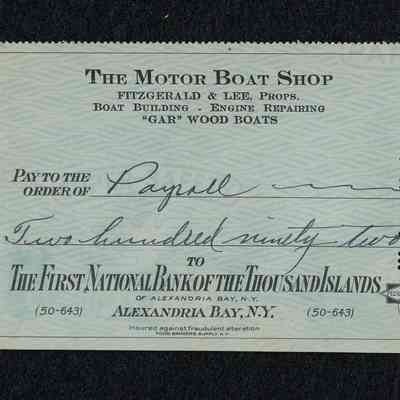 THE MOTOR BOAT SHOP
FITZGERALD & LEE, PROPS.
BOAT BUILDING - ENGINE REPAIRING
"GAR" WOOD BOATS
PAY TO THE
ORDER OF Payroll
Two hundred ninety two
TO
THE FIRST NATIONAL BANK OF THE THOUSAND ISLANDS
OF ALEXANDRIA BAY, N.Y.
(50-643) ALEXANDRIA BAY, N.Y. (50-643)
Insured against fraudulent alteration